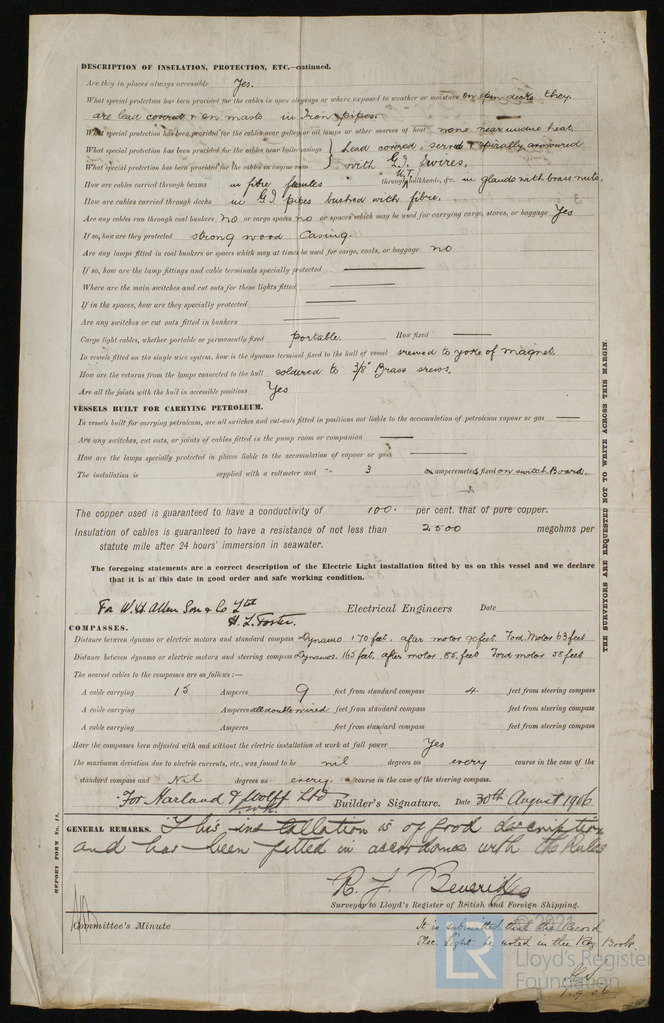 DESCRIPTION OF INSULATION, PROTECTION, ETC.—continued.
Are they in places always accessible Yes.
What special protection has been provided for the cables in open alleyways or where exposed to weather or moisture on open decks they
are lead covered & on masts in Iron pipes.
What special protection has been provided for the cables near galley or oil lamps or other sources of heat none near undue heat.
What special protection has been provided for the cables near boiler casings } Lead covered, served & spirally armoured
What special protection has been provided for the cables in engine room with G.I. wires.
How are cables carried through beams in fibre ferrules through W.T. bulkheads, &c. in glands with brass nuts.
How are cables carried through decks in G.I. pipes bushed with fibre.
Are any cables run through coal bunkers no or cargo spaces no or spaces which may be used for carrying cargo, stores, or baggage Yes
If so, how are they protected strong wood casing.
Are any lamps fitted in coal bunkers or spaces which may at times be used for cargo, coals, or baggage no
If so, how are the lamp fittings and cable terminals specially protected
Where are the main switches and cut outs for these lights fitted
If in the spaces, how are they specially protected
Are any switches or cut outs fitted in bunkers
Cargo light cables, whether portable or permanently fixed portable. How fixed
In vessels fitted on the single wire system, how is the dynamo terminal fixed to the hull of vessel srewed to yoke of magnet.
How are the returns from the lamps connected to the hull soldered to 3/8" Brass srews.
Are all the joints with the hull in accessible positions Yes
VESSELS BUILT FOR CARRYING PETROLEUM.
In vessels built for carrying petroleum, are all switches and cut-outs fitted in positions not liable to the accumulation of petroleum vapour or gas
Are any switches, cut outs, or joints of cables fitted in the pump room or companion
How are the lamps specially protected in places liable to the accumulation of vapour or gas
The installation is supplied with a voltmeter and 3 amperemeters fixed on switch Board.
The copper used is guaranteed to have a conductivity of 100. per cent. that of pure copper.
Insulation of cables is guaranteed to have a resistance of not less than 2500 megohms per
statute mile after 24 hours' immersion in seawater.
The foregoing statements are a correct description of the Electric Light installation fitted by us on this vessel and we declare
that it is at this date in good order and safe working condition.
For W. H. Allen Son & Co Ltd
H. L. Foster Electrical Engineers Date
COMPASSES.
Distance between dynamo or electric motors and standard compass Dynamo 170 feet. after motor 90 feet. Ford. Motor 63 feet
Distance between dynamo or electric motors and steering compass Dynamos. 165 feet. after motor 85. feet Ford motor 58 feet
The nearest cables to the compasses are as follows:—
A cable carrying 15 Amperes 9 feet from standard compass 4 feet from steering compass
A cable carrying Amperes all double wired feet from standard compass feet from steering compass
A cable carrying Amperes feet from standard compass feet from steering compass
Have the compasses been adjusted with and without the electric installation at work at full power Yes
The maximum deviation due to electric currents, etc., was found to be nil degrees on every course in the case of the
standard compass and Nil degrees on every. course in the case of the steering compass.
For Harland & Wolff Ltd Builder's Signature. Date 30th August 1906
GENERAL REMARKS. This installation is of good description
and has been fitted in accordance with the Rules
R. J. Beveridge
Surveyor to Lloyd's Register of British and Foreign Shipping.
Committee's Minute
It is submitted that the Record
Elec. Light be noted in the Reg. Book.
THE SURVEYORS ARE REQUESTED NOT TO WRITE ACROSS THIS MARGIN.
REPORT FORM No. 11.
© 2021
LR
Lloyd's Register
Foundation